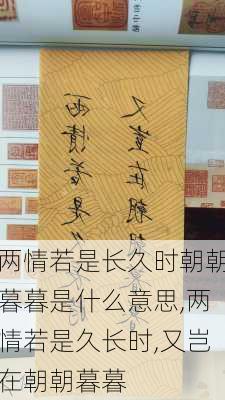 两情若是久
又豈在朝朝暮暮
两情若是长久时朝朝
暮暮是什么意思,两
情若是久长时,又岂
在朝朝暮暮